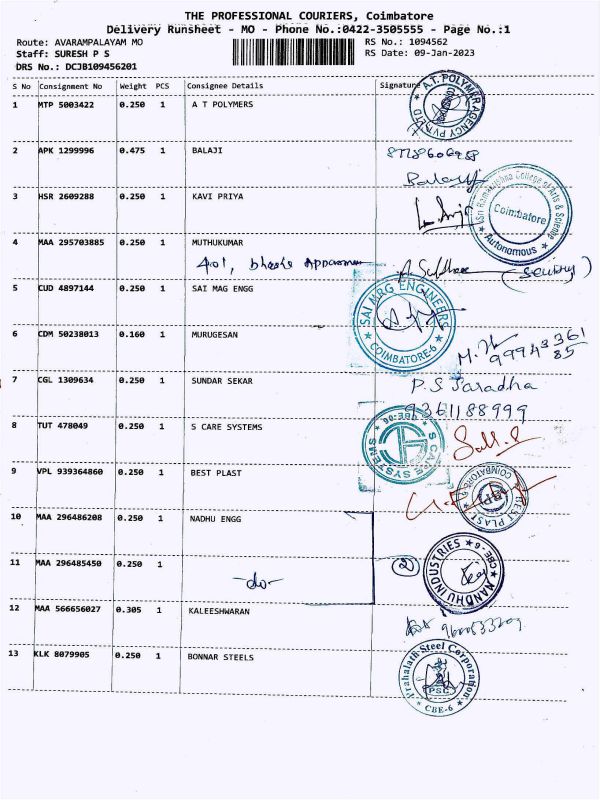 THE PROFESSIONAL COURIERS, Coimbatore
Delivery Runsheet - MO - Phone No.:0422-3505555 - Page No.:1
Route: AVARAMPALAYAM MO RS No.: 1094562
Staff: SURESH P S RS Date: 09-Jan-2023
DRS No.: DCJB109456201
S No Consignment No Weight PCS Consignee Details Signature
A.T. POLYMAR AGENCY PVT LTD
1 MTP 5003422 0.250 1 A T POLYMERS
2 APK 1299996 0.475 1 BALAJI
Balaji
3 HSR 2609288 0.250 1 KAVI PRIYA
Sri Ramakrishna College of Arts & Science
Coimbatore
Autonomous
4 MAA 295703885 0.250 1 MUTHUKUMAR
401,
5 CUD 4897144 0.250 1 SAI MAG ENGG
SAI MRG ENGINEER
COIMBATORE-6
6 CDM 50238013 0.160 1 MURUGESAN
99943361
85
7 CGL 1309634 0.250 1 SUNDAR SEKAR
P.S Saradha
9361188999
8 TUT 478049 0.250 1 S CARE SYSTEMS
S CARE SYSTEMS CBE-06
9 VPL 939364860 0.250 1 BEST PLAST
BEST PLAST COIMBATORE-6
10 MAA 296486208 0.250 1 NADHU ENGG
11 MAA 296485450 0.250 1
-do-
2
NANDHU INDUSTRIES CBE-6
12 MAA 566656027 0.305 1 KALEESHWARAN
13 KLK 8079905 0.250 1 BONNAR STEELS
Prahalath Steel Corporation
PSC
CBE-6